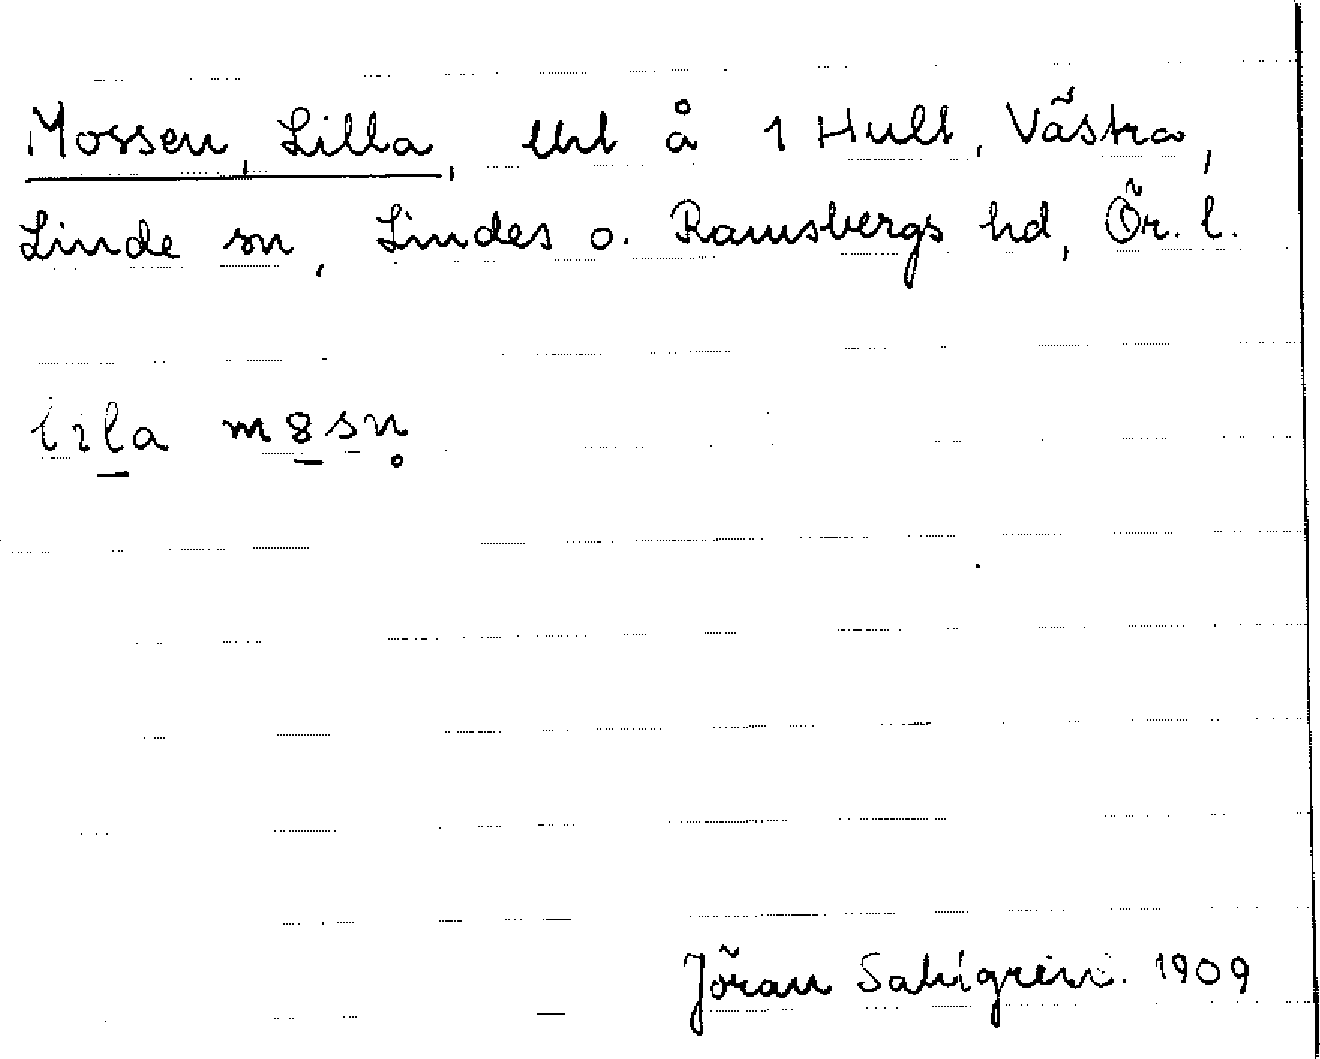 Mossen, Lilla, lht å 1 Hult, Västra,
Linde sn, Lindes o. Ramsbergs hd, Ör. l.
lɪla m8sn̥
Jöran Sahlgren. 1909